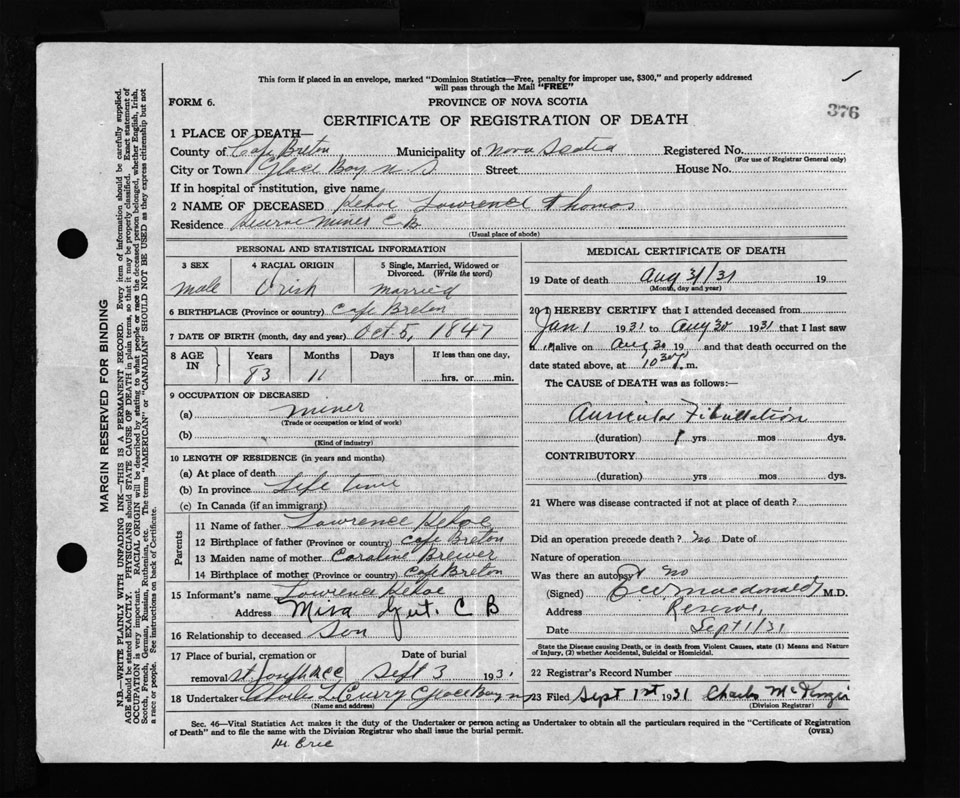 This form if placed in an envelope, marked "Dominion Statistics—Free, penalty for improper use, $300," and properly addressed
will pass through the Mail "FREE"
FORM 6.
PROVINCE OF NOVA SCOTIA
376
CERTIFICATE OF REGISTRATION OF DEATH
1 PLACE OF DEATH—
County of Cape Breton Municipality of Nova Scotia Registered No.
(For use of Registrar General only)
City or Town Glace Bay N.S. Street House No.
If in hospital or institution, give name
2 NAME OF DECEASED Kehoe Lawrence Thomas
Residence Reserve Mines C B
(Usual place of abode)
PERSONAL AND STATISTICAL INFORMATION
3 SEX
4 RACIAL ORIGIN
5 Single, Married, Widowed or
Divorced. (Write the word)
male Irish married
6 BIRTHPLACE (Province or country) Cape Breton
7 DATE OF BIRTH (month, day and year) Oct 5, 1847
8 AGE IN
Years Months Days If less than one day,
83 11
hrs. or min.
9 OCCUPATION OF DECEASED
(a) miner
(Trade or occupation or kind of work)
(b)
(Kind of industry)
10 LENGTH OF RESIDENCE (in years and months)
(a) At place of death
(b) In province Life time
(c) In Canada (if an immigrant)
Parents
11 Name of father Lawrence Kehoe
12 Birthplace of father (Province or country) Cape Breton
13 Maiden name of mother Caroline Brewer
14 Birthplace of mother (Province or country) Cape Breton
15 Informant's name Lawrence Kehoe
Address Mira Gut. C B
16 Relationship to deceased Son
17 Place of burial, cremation or Date of burial
removal Sept 3 1931
18 Undertaker Curry Glace Bay
(Name and address)
MEDICAL CERTIFICATE OF DEATH
19 Date of death Aug 31/31 19
(Month, day and year)
20 I HEREBY CERTIFY that I attended deceased from
Jan 1 1931 to Aug 30 1931 that I last saw
h im alive on Aug 30 19 and that death occurred on the
date stated above, at 10 30 p. m.
The CAUSE of DEATH was as follows:
Auricular Fibrillation
(duration) 1 yrs mos dys.
CONTRIBUTORY
(duration) yrs mos dys.
21 Where was disease contracted if not at place of death?
Did an operation precede death? no Date of
Nature of operation
Was there an autopsy? no
(Signed) Macdonald M.D.
Address Reserve,
Date Sept 1/31
State the Disease causing Death, or in death from Violent Causes, state (1) Means and Nature
of Injury, (2) whether Accidental, Suicidal or Homicidal.
22 Registrar's Record Number
23 Filed Sept 1st 1931 Charles McKenzie
(Division Registrar)
Sec. 46—Vital Statistics Act makes it the duty of the Undertaker or person acting as Undertaker to obtain all the particulars required in the "Certificate of Registration
of Death" and to file the same with the Division Registrar who shall issue the burial permit.
(OVER)
MARGIN RESERVED FOR BINDING
N.B.—WRITE PLAINLY WITH UNFADING INK—THIS IS A PERMANENT RECORD. Every item of information should be carefully supplied.
AGE should be stated EXACTLY. PHYSICIANS should STATE CAUSE OF DEATH in plain terms, so that it may be properly classified. Exact statement of
OCCUPATION is very important. RACIAL ORIGIN will be described by stating to what people or race the deceased person belonged, whether English, Irish,
Scotch, French, German, Russian, Ruthenian, etc. The terms "AMERICAN" or "CANADIAN" SHOULD NOT BE USED as they express citizenship but not
a race or people. See instructions on back of Certificate.